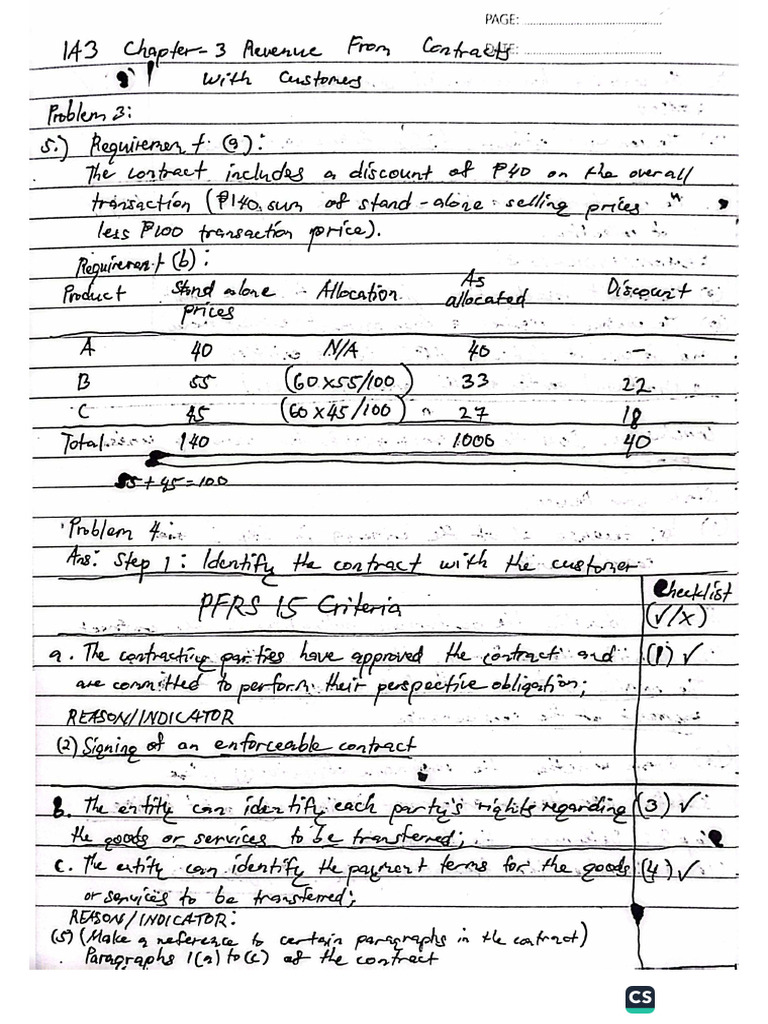 PAGE:
IA3 Chapter-3 Revenue From Contracts
DATE:
with Customers
Problem 3:
5.) Requirement (a):
The contract includes a discount of ₱40 on the overall
transaction (₱140 sum of stand-alone selling prices
less ₱100 transaction price).
Requirement (b):
Product Stand alone prices Allocation As allocated Discount
A 40 N/A 40 -
B 55 (60 x 55/100) 33 22
C 45 (60 x 45/100) 27 18
Total 140 1000 40
55 + 45 = 100
Problem 4:
Ans: Step 1: Identify the contract with the customer
PFRS 15 Criteria Checklist (√/x)
a. The contracting parties have approved the contract and (1) √
are committed to perform their perspective obligation;
REASON/INDICATOR
(2) Signing of an enforceable contract
b. The entity can identify each party's rights regarding (3) √
the goods or services to be transferred;
c. The entity can identify the payment terms for the goods (4) √
or services to be transferred;
REASON/INDICATOR:
(5) (Make a reference to certain paragraphs in the contract)
Paragraphs 1(a) to (c) of the contract
CS